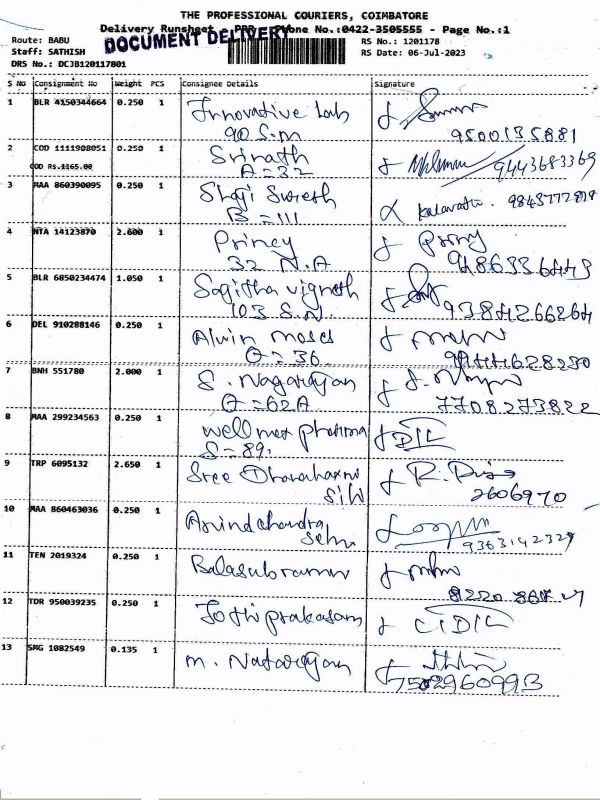 THE PROFESSIONAL COURIERS, COIMBATORE
Delivery Runsheet - Phone No.:0422-3505555 - Page No.:1
DOCUMENT DELIVERY
Route: BABU RS No.: 1201178
Staff: SATHISH RS Date: 06-Jul-2023
DRS No.: DCJB120117801
S No Consignment No Weight PCS Consignee Details Signature
1 BLR 4150344664 0.250 1 Innovative Lab
90 S.M 9500135881
2 COD 1111908051 0.250 1 Srinath
COD Rs.1165.00 A=32 9443683369
3 MAA 860390095 0.250 1 Shaji Suresh
B=111 Kalavathi
4 NTA 14123870 2.600 1 Princy
32 N.A
5 BLR 6850234474 1.050 1 Sagitha Vignesh
103 S.N. 9384266264
6 DEL 910288146 0.250 1 Alwin Moses
O=36. 9944628230
7 BNH 551780 2.000 1 S. Nagarajan
O=62A 7708273822
8 MAA 299234563 0.250 1 Wellmex Pharma
S=89.
9 TRP 6095132 2.650 1 Sree
2606970
10 MAA 860463036 0.250 1 Arindchandra
9363142329
11 TEN 2019324 0.250 1 Balasubramani
12 TDR 950039235 0.250 1 Jothiprakasam
13 SMG 1082549 0.135 1 M. Natarajan
7502960993